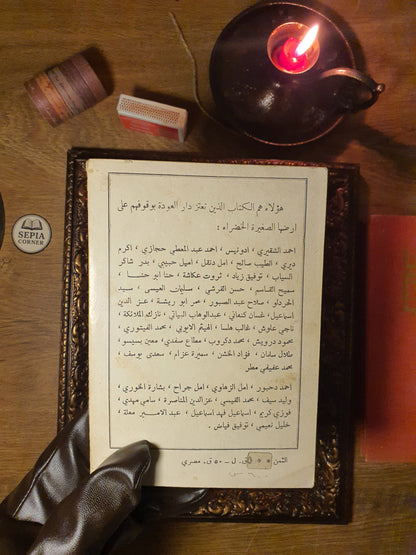 هؤلاء هم الكتاب الذين تعتز دار العودة بوقوفهم على
ارضها الصغيرة الخضراء :
احمد الشقيري ، ادونيس ، احمد عبد المعطي حجازي ، اكرم
ديري ، الطيب صالح ، امل دنقل ، اميل حبيبي ، بدر شاكر
السياب ، توفيق زياد ، ثروت عكاشة ، حنا ابو حنا ،
سميح القاسم ، حسن القرشي ، سليمان العيسى ، سيد
الحردلو ، صلاح عبد الصبور ، عمر ابو ريشة ، عز الدين
اسماعيل ، غسان كنفاني ، عبدالوهاب البياتي ، نازك الملائكة ،
ناجي علوش ، غالب هلسا ، الهيثم الايوبي ، محمد الفيتوري ،
محمود درويش ، محمد دكروب ، مطاع صفدي ، معين بسيسو ،
سلمان ، فؤاد الخشن ، سميرة عزام ، سعدي يوسف ،
محمد عفيفي مطر
احمد دحبور ، امل الزهاوي ، امل جراح ، بشارة الخوري ،
وليد سيف ، محمد القيسي ، عزالدين المناصرة ، سامي مهدي ،
فوزي كريم ، اسماعيل فهد اسماعيل ، عبد الامير معلة ،
خليل نعيمي ، توفيق فياض .
الثمن ق. ل - ٥٠ ق. مصري
SEPIA
CORNER